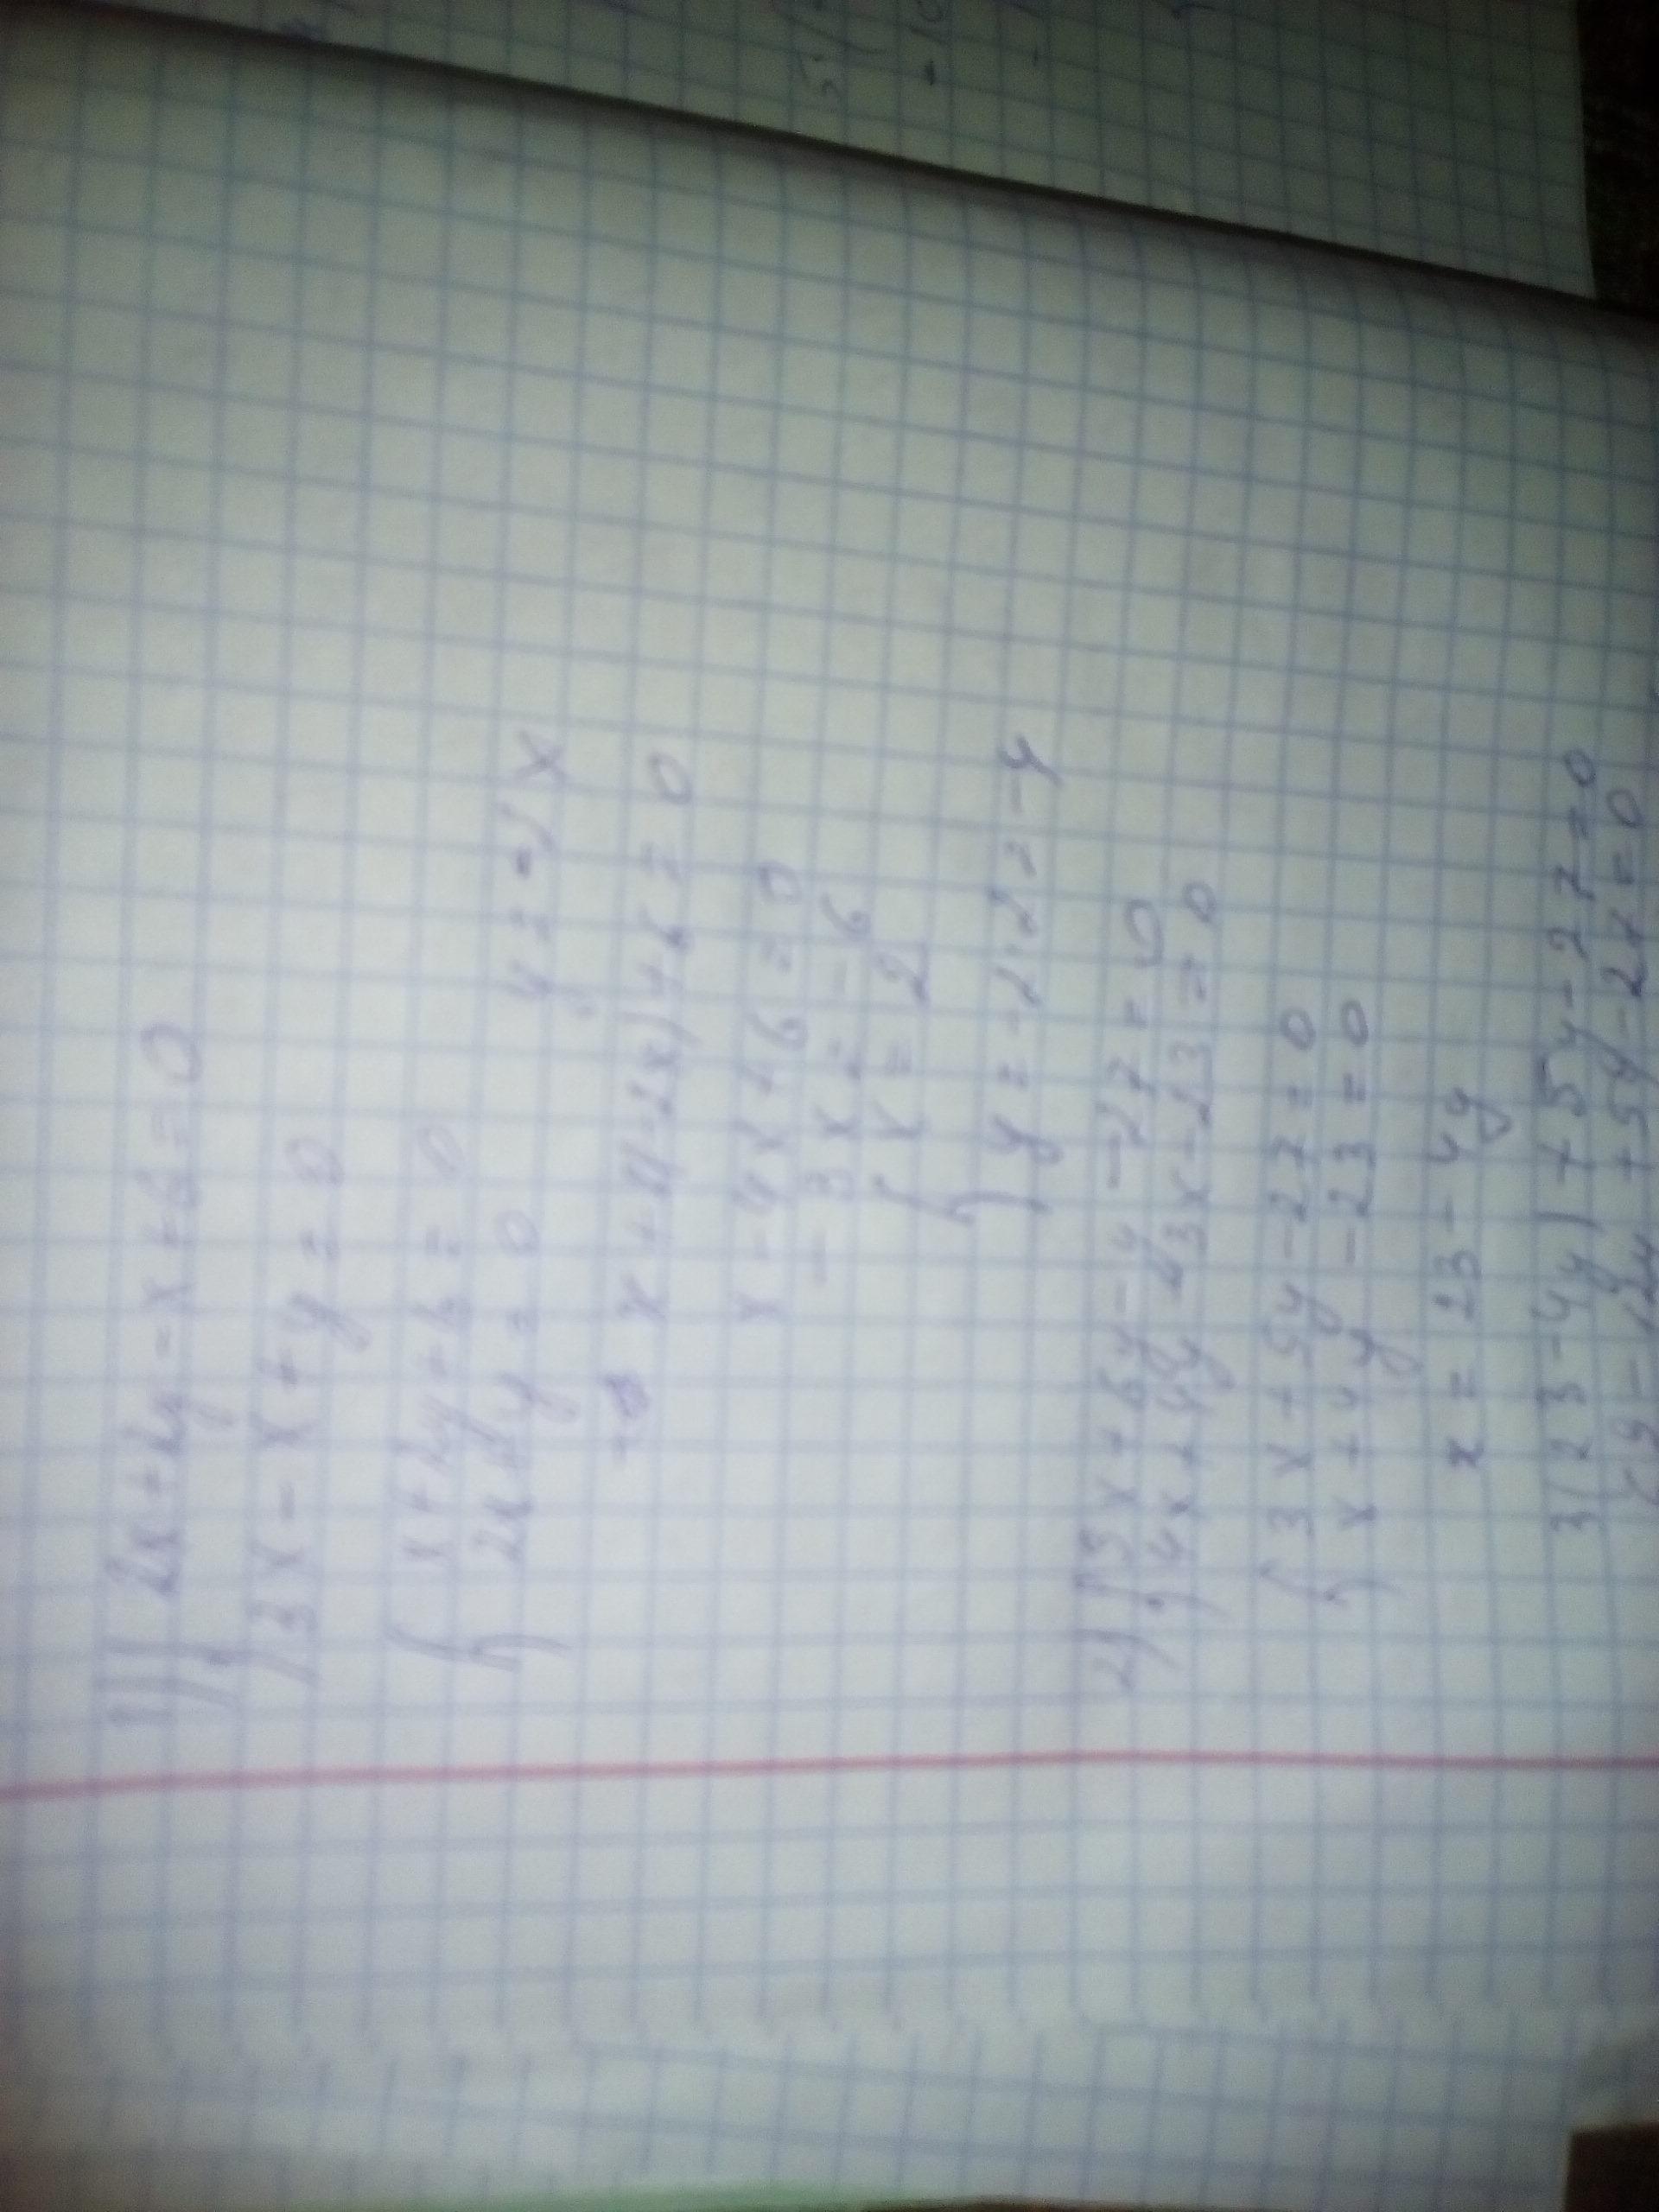 1) { 2x + 2y - x + 6 = 0
3x - x + y = 0
{ x + 2y + 6 = 0
2x + y = 0 y = -2x
x + 2(-2x) + 6 = 0
x - 4x + 6 = 0
- 3x = - 6
{ x = 2
y = -2·2 = -4
2) { 3x + 6y - y - 27 = 0
4x + 4y - 3x - 23 = 0
{ 3x + 5y - 27 = 0
x + 4y - 23 = 0
x = 23 - 4y
3(23 - 4y) + 5y - 27 = 0
69 - 12y + 5y - 27 = 0